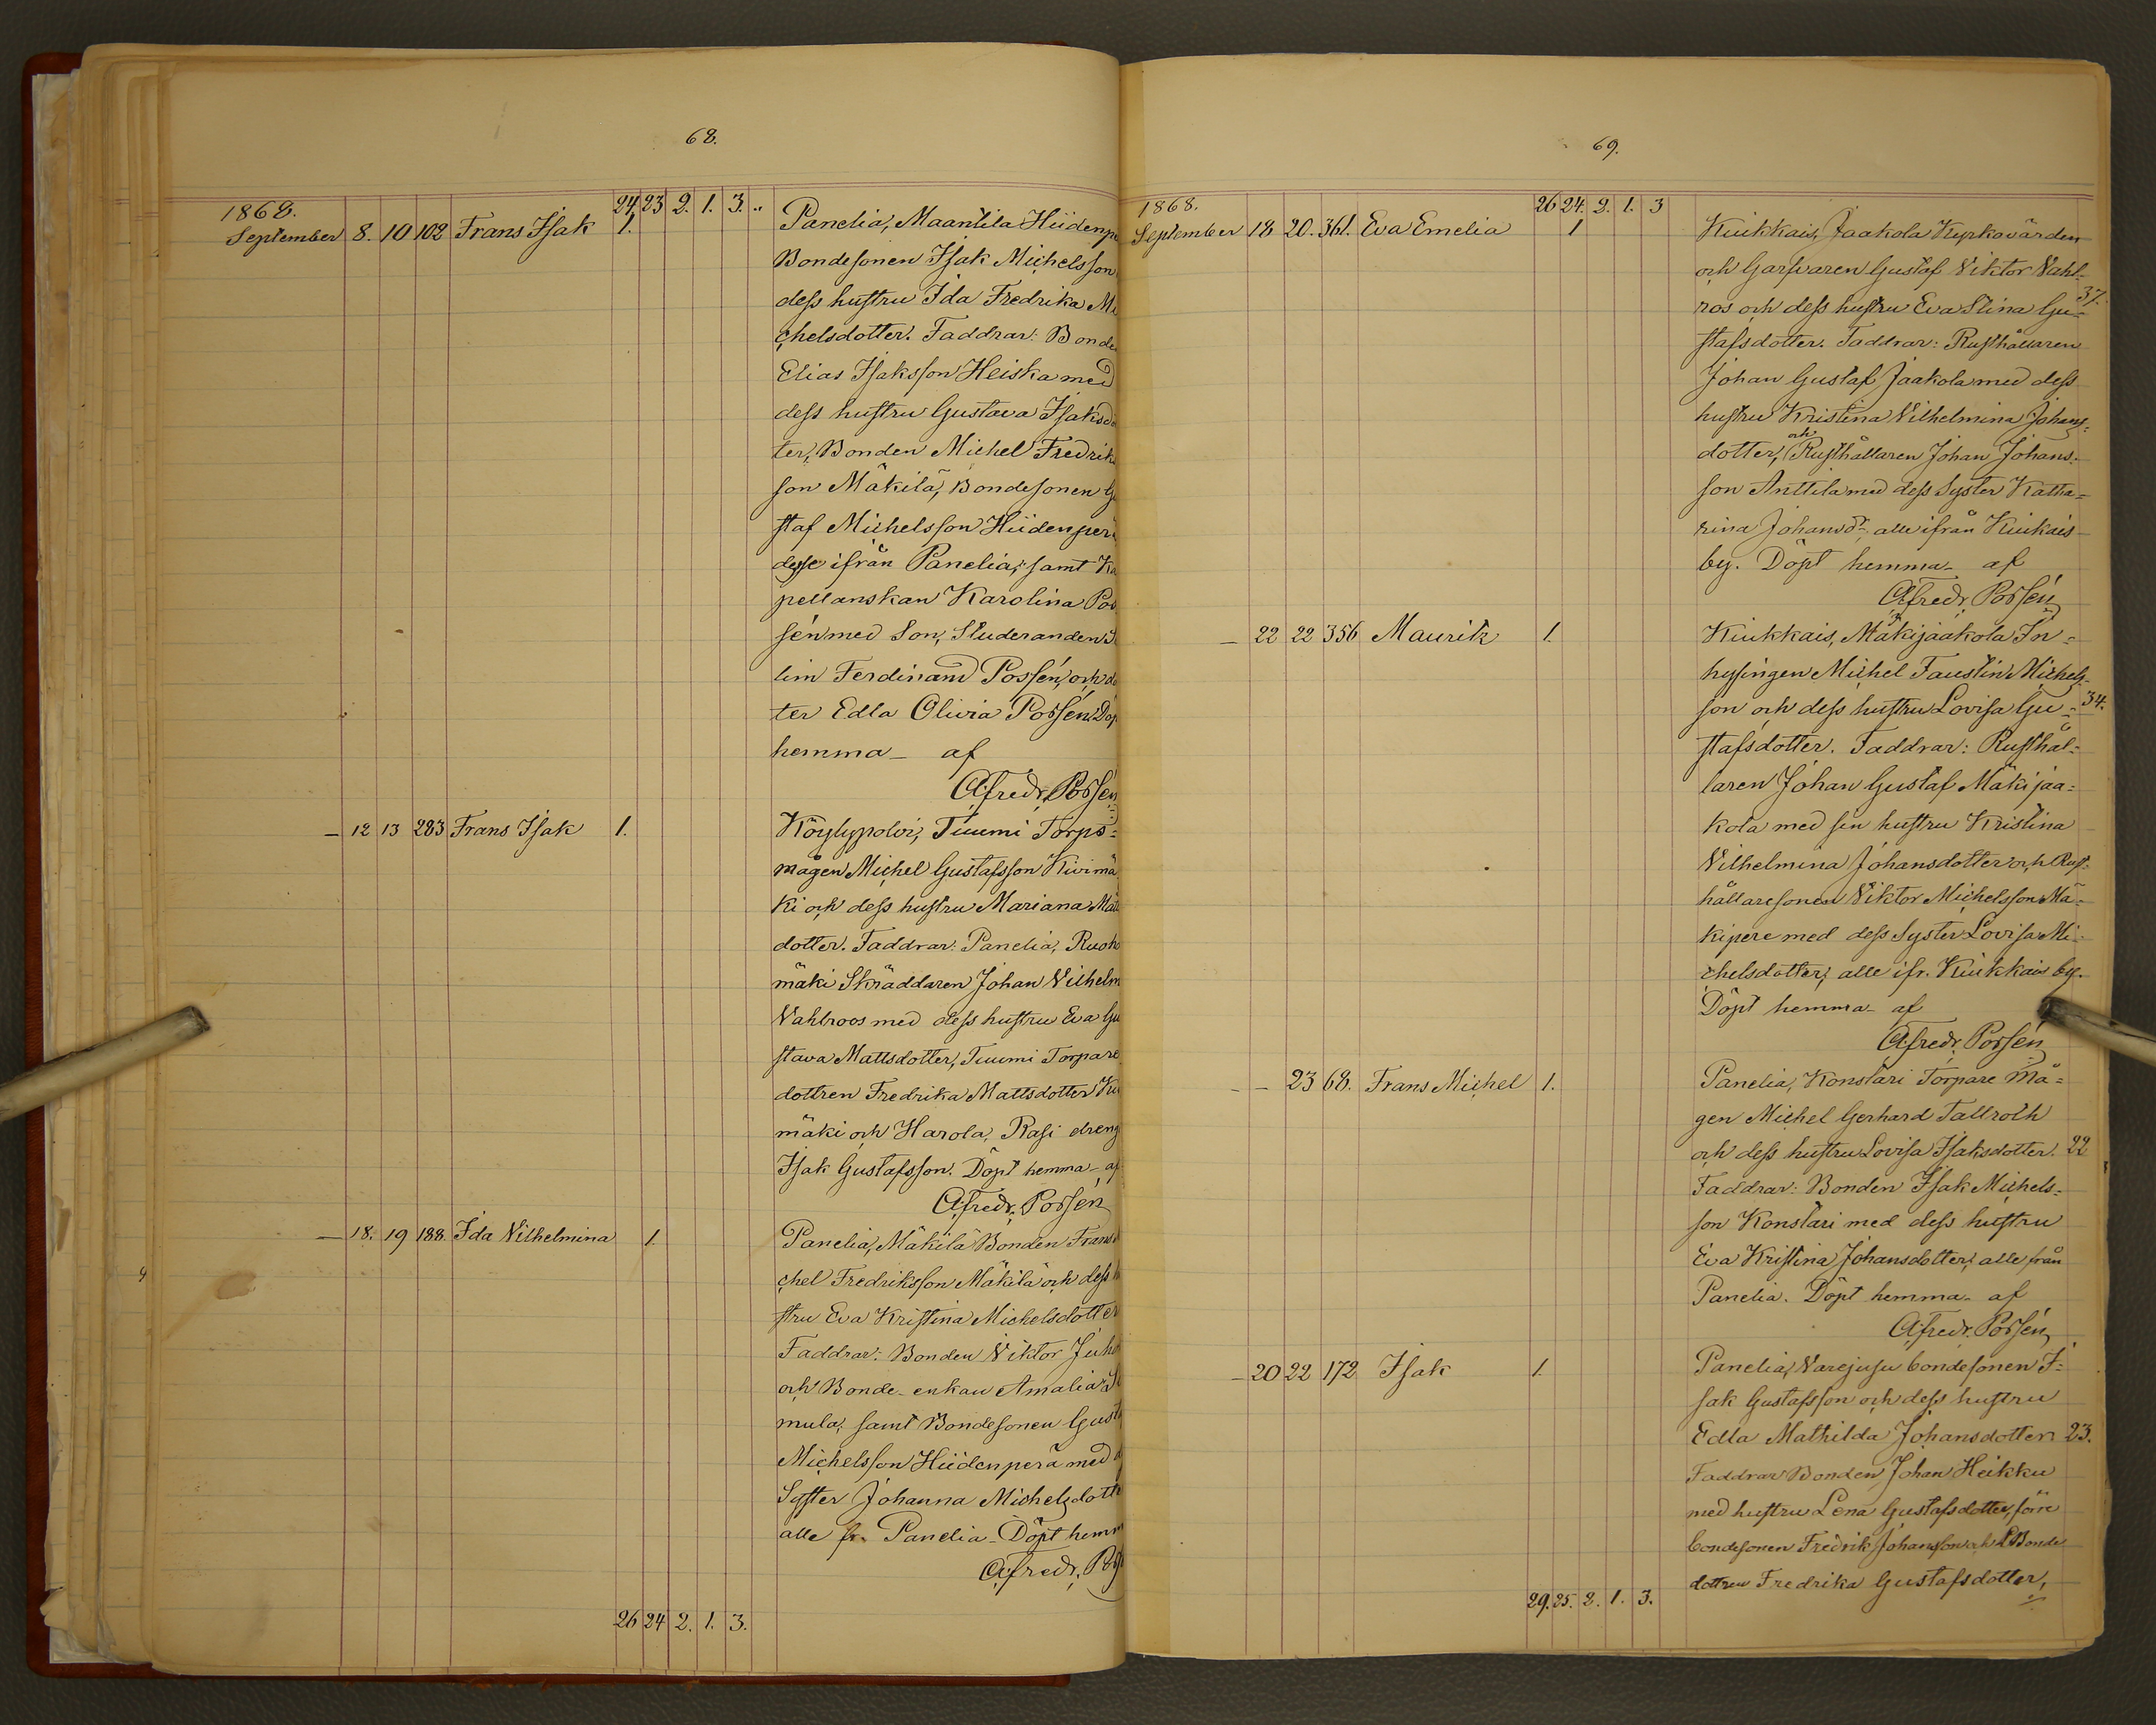 68.
1868.
24 23 2. 1. 3. "
September 8. 10 102 Frans Isak 1. Panelia, Maantila Hiidenpe
Bondesonen Isak Michelsson
dess hustru Ida Fredrika Mi
chelsdotter. Faddrar: Bonde
Elias Isaksson Heiska med
dess hustru Gustava Isaksdo
ter, Bonden Michel Fredrik
son Mäkilä, Bondesonen Gu
staf Michelsson Hiidenperä
desse ifrån Panelia, samt Ka
pellanskan Karolina Pos
sén med Son, Studeranden
lim Ferdinand Possén, och do
ter Edla Olivia Possén. Döp
hemma - af
A. Fredr. Possén
- 12 13 283 Frans Isak 1. Köylypolvi, Tuumi Torps=
mågen Michel Gustafsson Kivimä
ki och dess hustru Mariana Matt
dotter. Faddrar: Panelia, Ruoho
mäki Skräddaren Johan Vilhelm
Vahlroos med dess hustru Eva Gu
stava Mattsdotter, Tuumi Torpare
dottren Fredrika Mattsdotter Ki
mäki och Harola, Rasi dreng
Isak Gustafsson. Döpt hemma - af
A. Fredr. Possén
- 18. 19 188 Ida Vilhelmina 1. Panelia, Mäkilä Bonden Frans
chel Fredriksson Mäkilä och dess h
stru Eva Kristina Michelsdotter
Faddrar: Bonden Viktor Juho
och Bonde-enkan Amalia
mula, samt Bondesonen Gusta
Michelsson Hiidenperä med d
Syster Johanna Michelsdotte
alle fr. Panelia - Döpt hemm
A. Fredr. Pos
26 24 2. 1. 3.
69.
1868.
26 24. 2. 1. 3
September 18 20. 361. Eva Emelia 1 Kiukkais, Jaakola Kyrkovärden
och Garfvaren Gustaf Viktor Vahl-
ros och dess hustru Eva Stina Gu= 37.
stafsdotter. Faddrar: Rusthållaren
Johan Gustaf Jaakola med dess
hustru Kristina Vilhelmina Johans=
dotter, och Rusthållaren Johan Johans=
son Anttila med dess Syster Katha=
rina Johansdr, alle ifrån Kiukais
by. Döpt hemma - af
A. Fredr. Possén
- 22 22 356 Maurik 1. Kiukkais, Mäkijaakola In=
hysingen Michel Faustin Michels-
son och dess hustru Lovisa Gu= 34.
stafsdotter. Faddrar: Rusthål=
laren Johan Gustaf Mäkijaa=
kola med sin hustru Kristina
Vilhelmina Johansdotter och Rust=
hållaresonen Viktor Michelsson Mä=
kipere med dess Syster Lovisa Mi=
chelsdotter, alle ifr. Kiukkais by.
Döpt hemma - af
A. Fredr. Possén
- - 23 68. Frans Michel 1. Panelia, Konstari Torpare må=
gen Michel Gerhard Tallroth
och dess hustru Lovisa Isaksdotter. 22
Faddrar: Bonden Isak Michels=
son Konstari med dess hustru
Eva Kristina Johansdotter, alle från
Panelia. Döpt hemma - af
A. Fredr. Possén
- 20 22 172 Isak 1. Panelia, Varejusu bondesonen I=
sak Gustafsson och dess hustru
Edla Mathilda Johansdotter 23.
Faddrar Bonden Johan Heikku
med hustru Lena Gustafsdotter, förre
bondesonen Fredrik Johansson och Bonde
dottren Fredrika Gustafsdotter,
29. 25. 2. 1. 3.